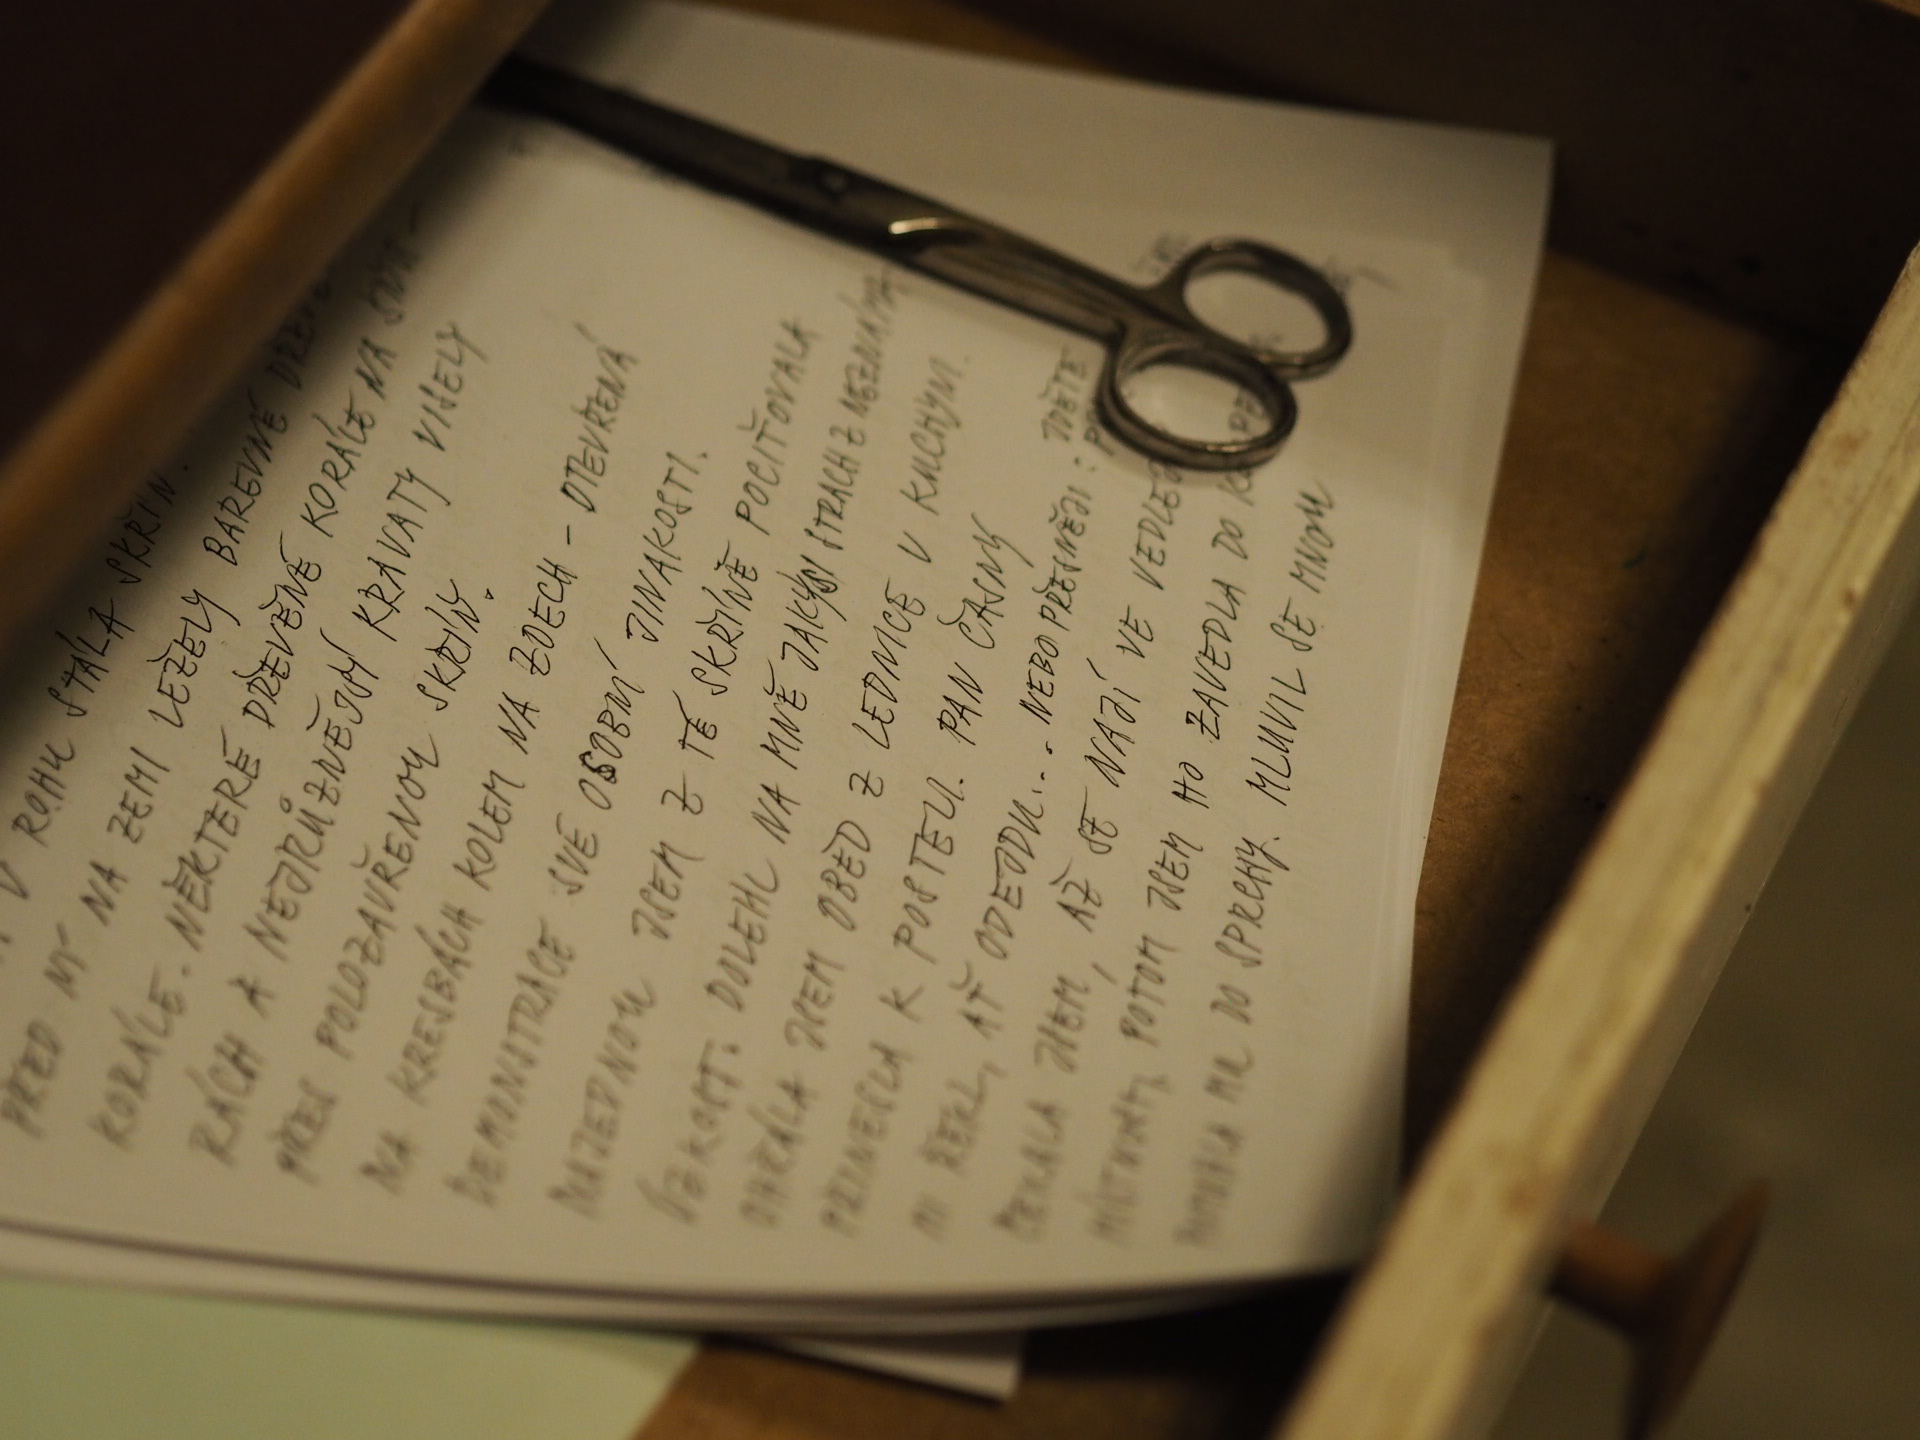 V ROHU STÁLA SKŘÍŇ.
PŘED NÍ NA ZEMI LEŽELY BAREVNÉ
KORÁLE. NĚKTERÉ DŘEVĚNÉ KORÁLE NA
RÁCH A NEJRŮZNĚJŠÍ KRAVATY VISELY
PŘES POLOZAVŘENOU SKŘÍŇ.
NA KRESBÁCH KOLEM NA ZDECH - OTEVŘENÁ
DEMONSTRACE SVÉ OSOBNÍ JINAKOSTI.
NAJEDNOU JSEM Z TÉ SKŘÍNĚ POCIŤOVALA
ÚZKOST. DOLEHL NA MNĚ JAKÝSI STRACH Z NEZNÁMA.
OHŘÁLA JSEM OBĚD Z LEDNICE V KUCHYNI.
PŘINESLA K POSTELI. PAN ČASNÝ
MI ŘEKL, AŤ ODEJDU... NEBO PŘESNĚJI: JDĚTE
ČEKALA JSEM, AŽ SE NAJÍ VE
MÍSTNOSTI, POTOM JSEM HO ZAVEDLA DO
POMOHLA MU DO SPRCHY. MLUVIL SE MNOU